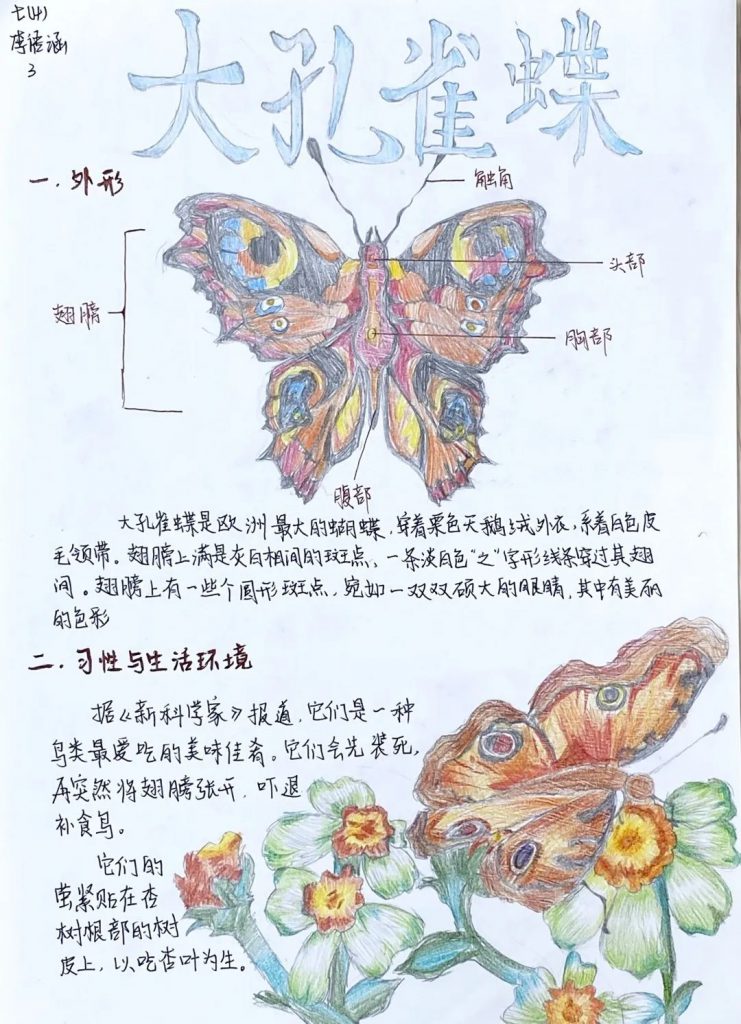 七(4)
李语涵
3
大孔雀蝶
一.外形
触角
头部
翅膀
胸部
腹部
大孔雀蝶是欧洲最大的蝴蝶,穿着栗色天鹅绒外衣,系着白色皮
毛领带。翅膀上满是灰白相间的斑点,一条淡白色“之”字形线条穿过其翅
间。翅膀上有一些个圆形斑点,宛如一双双硕大的眼睛,其中有美丽
的色彩
二.习性与生活环境
据《新科学家》报道,它们是一种
鸟类最爱吃的美味佳肴。它们会先装死,
再突然将翅膀张开,吓退
补食鸟。
它们的
茧紧贴在杏
树根部的树
皮上,以吃杏叶为生。